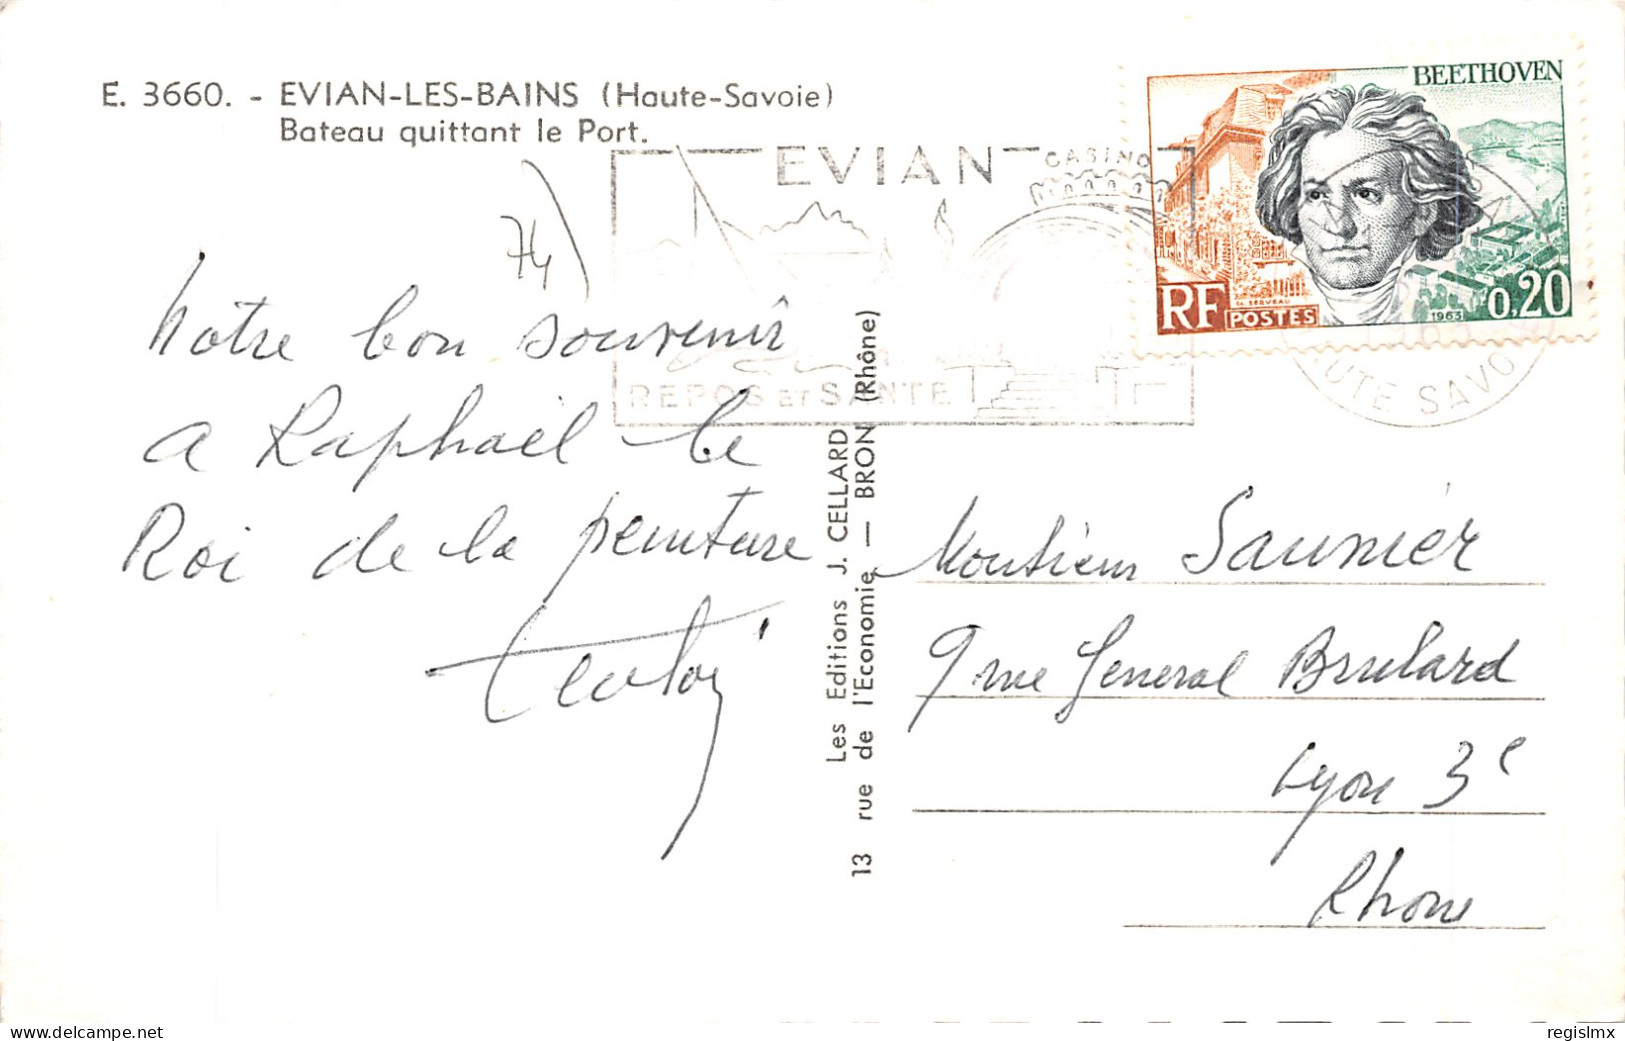 E. 3660. - EVIAN-LES-BAINS (Haute-Savoie)
Bateau quittant le Port.
74
EVIAN
CASINO
REPOS ET SANTE
BEETHOVEN
RF
POSTES
1963
0,20
HAUTE SAVOIE
Notre bon souvenir
a Raphaël le
Roi de la peinture
Les Editions J. CELLARD
13 rue de l'Economie — BRON (Rhône)
Monsieur Saunier
9 rue General Brulard
Lyon 3e
Rhone
www.delcampe.net
regislmx